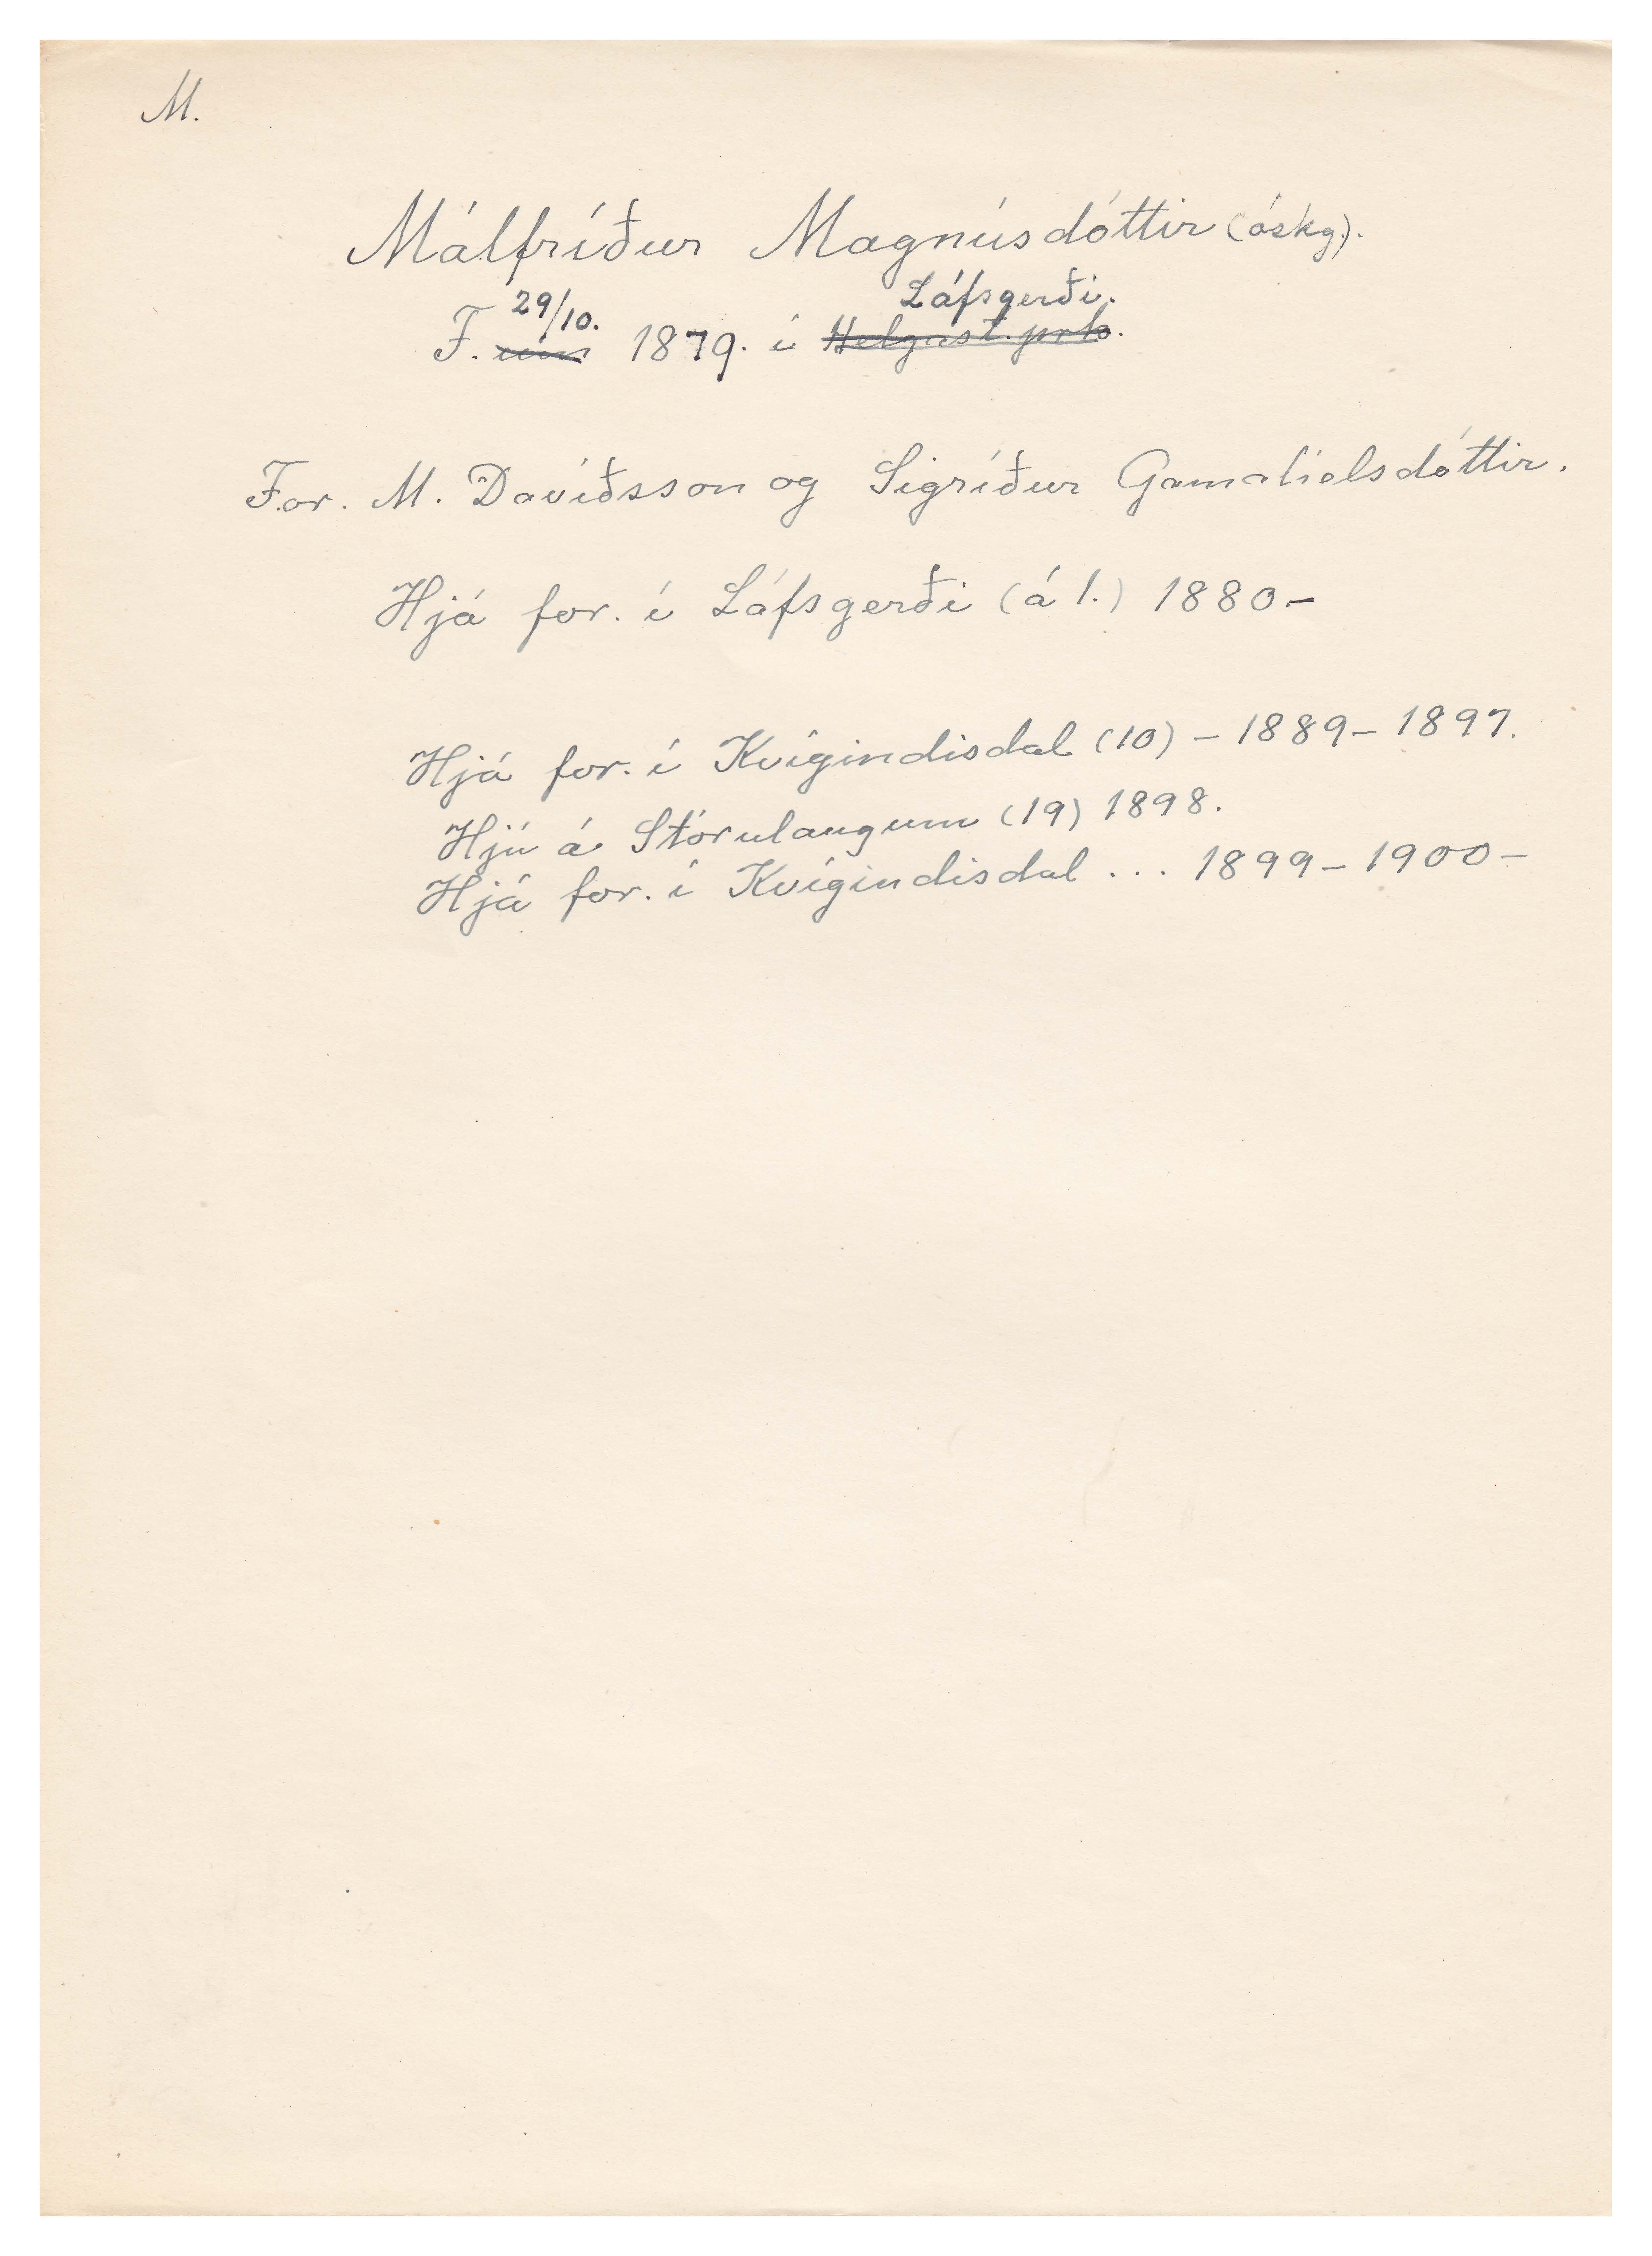 M.
Málfríður Magnúsdóttir (óskg).
29/10. Láfsgerði.
F. um 1879. í Helgast.prk.
For. M. Davíðsson og Sigríður Gamalíelsdóttir.
Hjá for. í Láfsgerði (á 1.) 1880-
Hjá for. í Kvígindisdal (10) - 1889 - 1897.
Hjú á Stórulaugum (19) 1898.
Hjá for. í Kvígindisdal ... 1899 - 1900 -